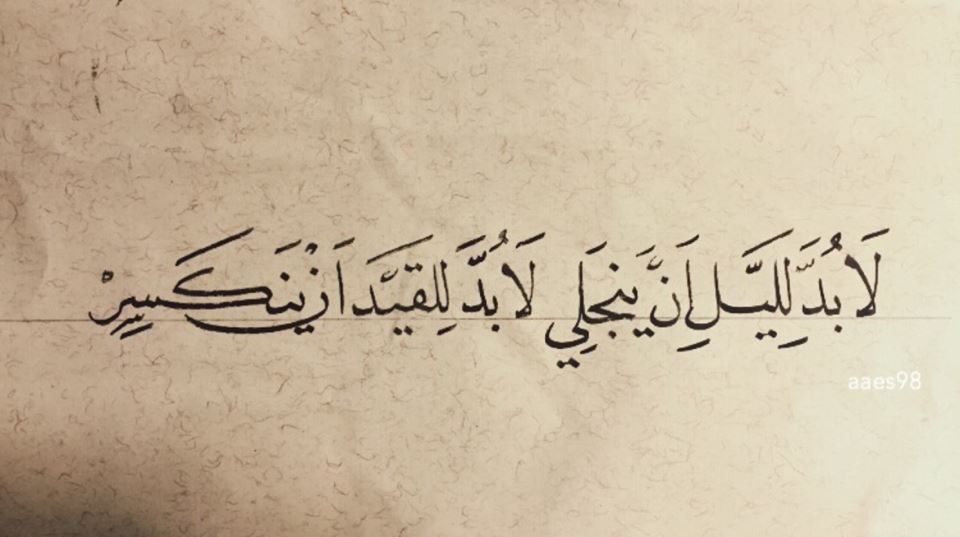 لَا بُدَّ لِلَّيْلِ اَنْ يَنجَلِي لَا بُدَّ لِلقَيْدِ اَنْ يَنكَسِرْ
aaes98